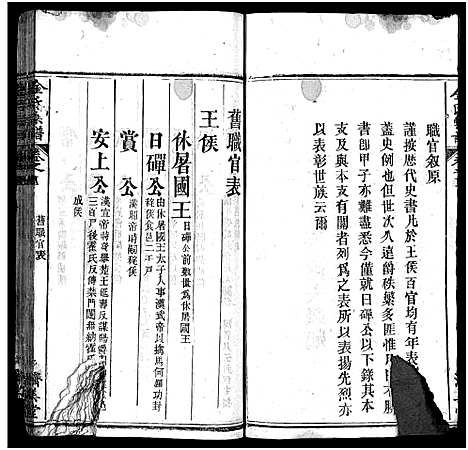 職官叙原
謹按歷代史書凡於王侯百官均有年表
蓋史例也但世次久遠爵秩繁多匪惟月
書即甲子亦難盡悉今僅就日磾公以下錄其本
支及與本支有關者列爲之表所以表揚先烈亦
以表彰世族云爾
舊職官表
王侯
休屠國王 日磾公前數世爲休居國王
日磾公 由休屠國王太子入事漢武帝以擒馬何羅功封
秺侯食邑二千戶
賞公 漢昭帝時嗣秺侯
安上公 漢宣帝時發舉楚王延壽反謀賜爵
三百戶後霍氏反傳禁門闥無納霍氏
成侯
宗譜 卷之
舊職官表